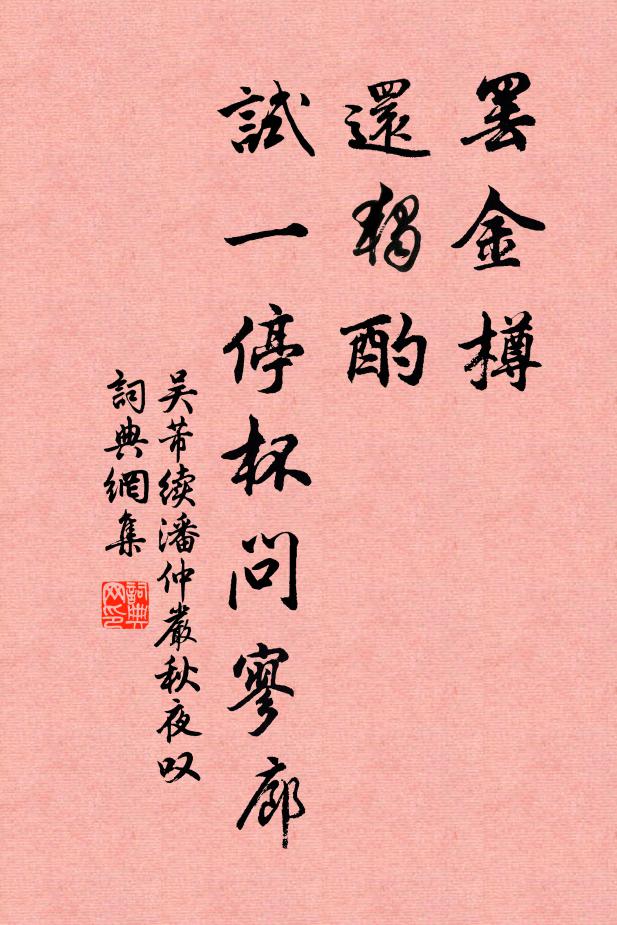 罢金樽
還獨酌
試一停杯問寥廊
吴芾续潘仲嚴秋夜叹
詞典網集
詞典网印